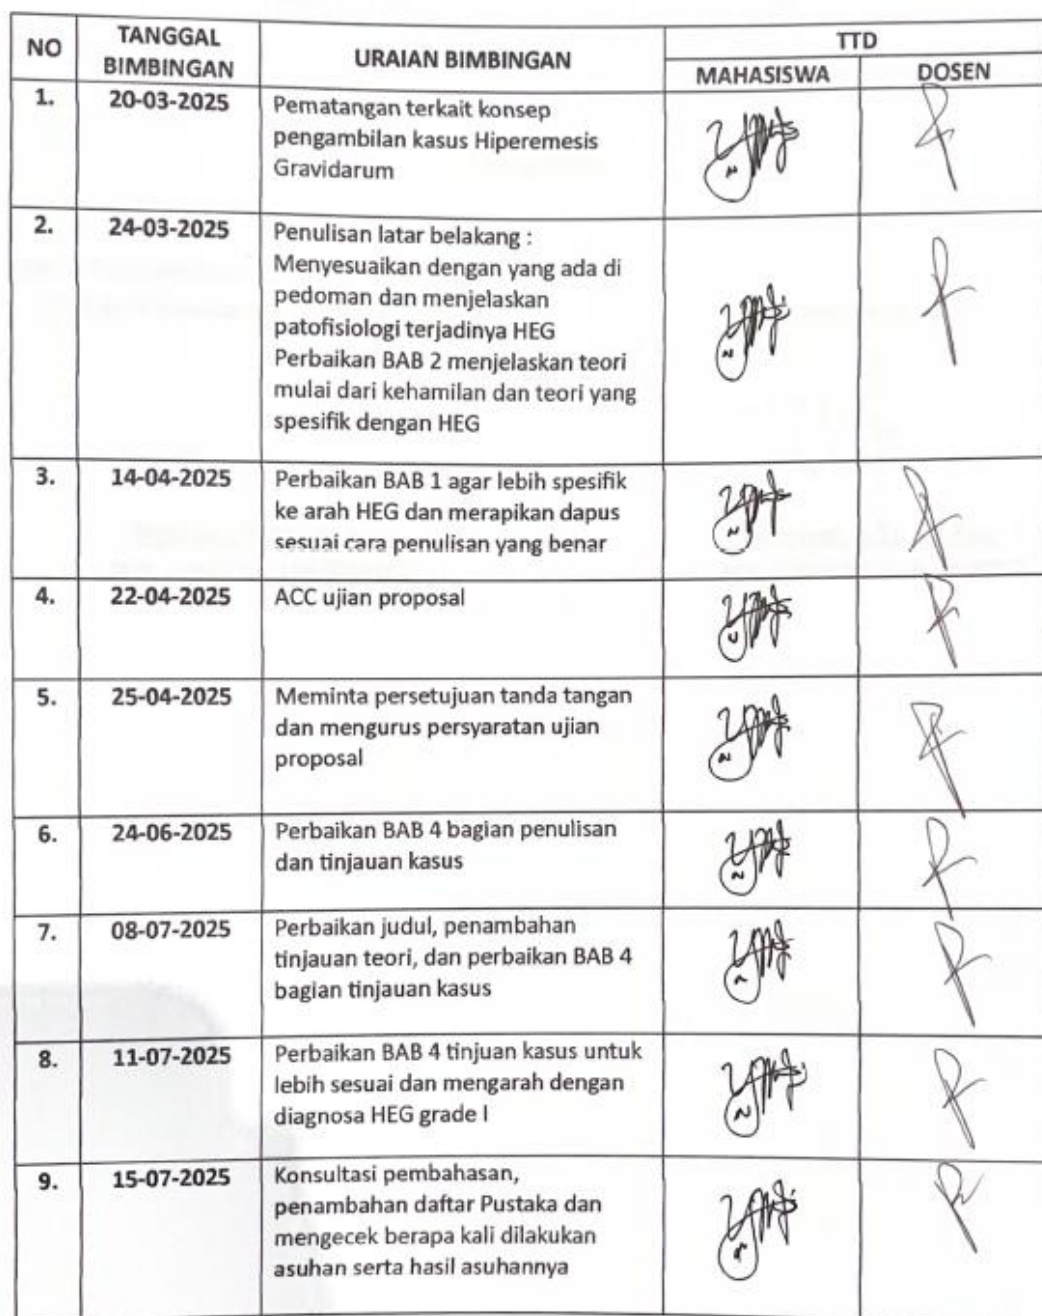 NO
TANGGAL
BIMBINGAN
URAIAN BIMBINGAN
TTD
MAHASISWA
DOSEN
1.
20-03-2025
Pematangan terkait konsep
pengambilan kasus Hiperemesis
Gravidarum
2.
24-03-2025
Penulisan latar belakang :
Menyesuaikan dengan yang ada di
pedoman dan menjelaskan
patofisiologi terjadinya HEG
Perbaikan BAB 2 menjelaskan teori
mulai dari kehamilan dan teori yang
spesifik dengan HEG
3.
14-04-2025
Perbaikan BAB 1 agar lebih spesifik
ke arah HEG dan merapikan dapus
sesuai cara penulisan yang benar
4.
22-04-2025
ACC ujian proposal
5.
25-04-2025
Meminta persetujuan tanda tangan
dan mengurus persyaratan ujian
proposal
6.
24-06-2025
Perbaikan BAB 4 bagian penulisan
dan tinjauan kasus
7.
08-07-2025
Perbaikan judul, penambahan
tinjauan teori, dan perbaikan BAB 4
bagian tinjauan kasus
8.
11-07-2025
Perbaikan BAB 4 tinjuan kasus untuk
lebih sesuai dan mengarah dengan
diagnosa HEG grade I
9.
15-07-2025
Konsultasi pembahasan,
penambahan daftar Pustaka dan
mengecek berapa kali dilakukan
asuhan serta hasil asuhannya